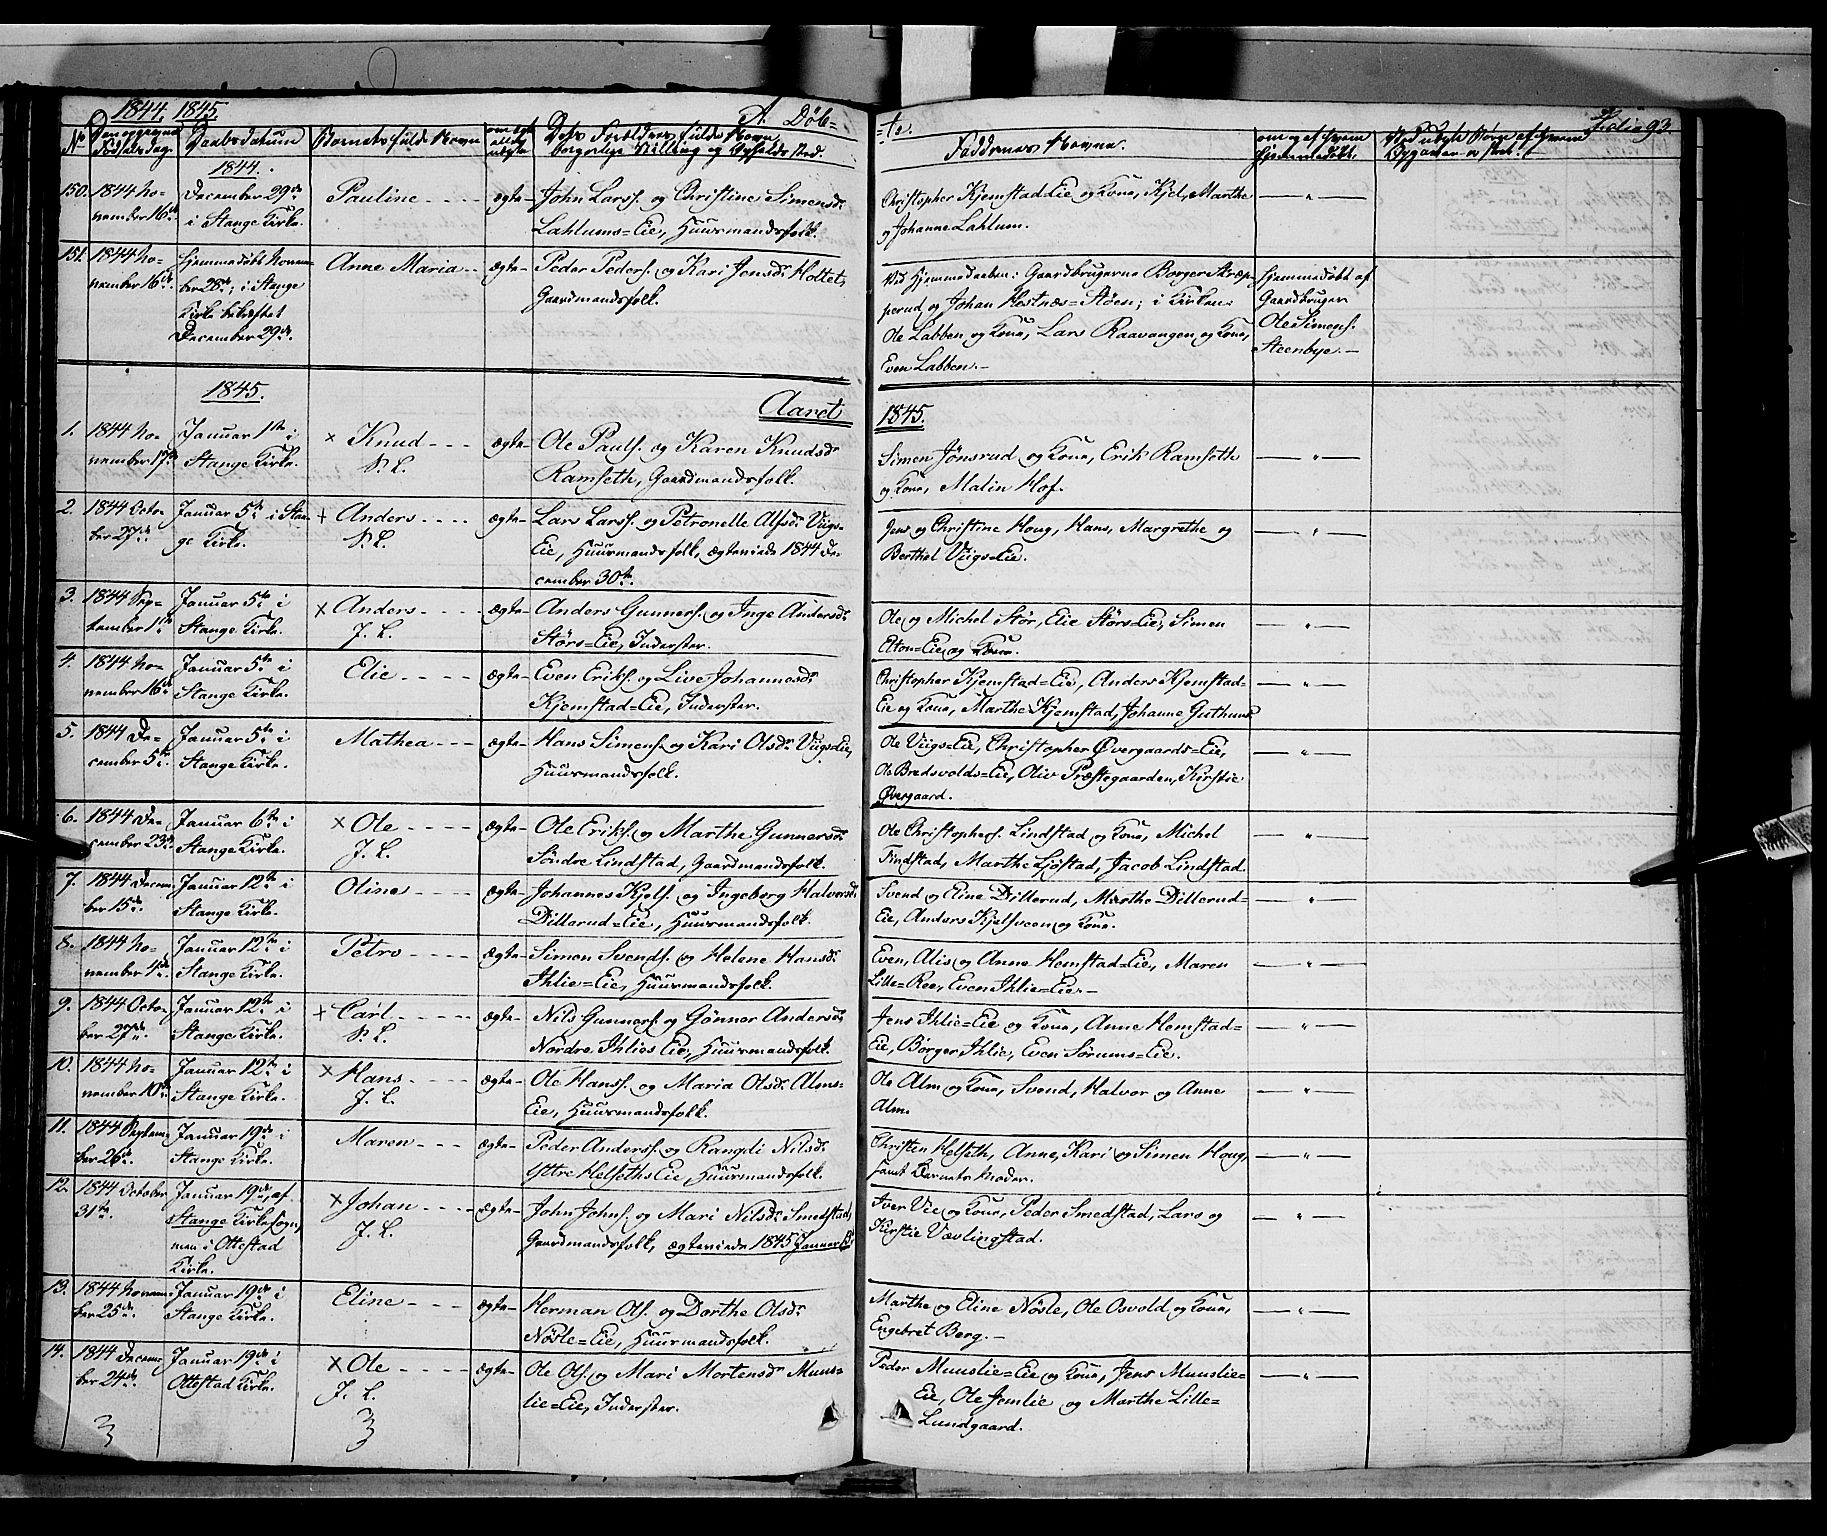 1844. 1845.
A. Døb-
No
Barnets fulde Navn
1844.
150.
1844 No-
vember 16de
December 29de
i Stange Kirke.
Pauline
ægte
John Larss. og Christine Simensd.
Lahlums=Eie, Huusmandsfolk.
151.
1844 No-
vember 16de
Hjemmedøbt Novem-
ber 28de; i Stange
Kirke bekræftet
December 29de.
Anne Maria
ægte
Peder Peders. og Kari Jensd. Holtet,
Gaardmandsfolk.
1845.
Aaret
1.
1844 No-
vember 17de
Januar 1ste i
Stange Kirke.
× Knud
ægte
Ole Pauls. og Karen Knudsd.
Ramseth, Gaardmandsfolk.
2.
1844 Octo-
ber 27de
Januar 5te i Stan-
ge Kirke.
+ Anders
ægte
Lars Larss. og Petronelle Alfsd. Viigs-
Eie, Huusmandsfolk, ægteviede 1844 De-
cember 30te.
3.
1844 Sep-
tember 11te
Januar 5te i
Stange Kirke.
× Anders
J. L.
ægte
Anders Gunners. og Inge Andersd.
Størs=Eie, Inderster.
4.
1844 No-
vember 16de
Januar 5te i
Stange Kirke.
Elie
ægte
Even Eriks. og Live Johannesd.
Kjemstad=Eie, Inderster.
5.
1844 De-
cember 5te
Januar 5te i
Stange Kirke.
Mathea
ægte
Hans Simens. og Kari Olsd. Viigs=Eie,
Huusmandsfolk.
6.
1844 De-
cember 23de
Januar 6te i
Stange Kirke.
× Ole
J. L.
ægte
Ole Eriks. og Marthe Gunnersd.
Søndre Lindstad, Gaardmandsfolk.
7.
1844 Decem-
ber 15de
Januar 12te i
Stange Kirke.
Oline
ægte
Johannes Kjels. og Ingeborg Halvorsd.
Dillerud=Eie, Huusmandsfolk.
8.
1844 No-
vember 4de
Januar 12te i
Stange Kirke.
Petro
ægte
Simen Svends. og Helene Hansd.
Ihlie=Eie, Huusmandsfolk.
9.
1844 Octo-
ber 27de
Januar 12te i
Stange Kirke.
+ Carl
ægte
Nils Gunners. og Gønnor Andersd.
Nordre Ihlies Eie, Huusmandsfolk.
10.
1844 No-
vember 10de
Januar 12te i
Stange Kirke.
× Hans
J. L.
ægte
Ole Hanss. og Maria Olsd. Alms-
Eie, Huusmandsfolk.
11.
1844 Septem-
ber 26de
Januar 19de i
Stange Kirke.
Maren
ægte
Peder Anderss. og Rangdi Nilsd.
Yttre Helseths Eie, Huusmandsfolk.
12.
1844 October
31te
Januar 19de, af
Stange Kirkesogn,
men i Ottestad
Kirke.
× Johan
J. L.
ægte
John Johns. og Mari Nilsd. Smedstad,
Gaardmandsfolk, ægteviede 1845 Januar
13.
1844 Novem-
ber 25de
Januar 19de i
Stange Kirke.
Eline
ægte
Herman Ols. og Dorthe Olsd.
Nøsle=Eie, Huusmandsfolk.
14.
1844 Decem-
ber 24de
Januar 19de i
Ottestad Kirke.
× Ole
J. L.
ægte
Ole Ols. og Mari Mortensd. Muus-
lie=Eie, Inderster.
3
3
=te.
Folio 93
Faddernes Navne.
Christopher Kjemstad=Eie og Kone, Kjel, Marthe
og Johanne Lahlum.
Ved Hjemmedaaben: Gaardbrugerne Borger Stræp-
perud og Johan Hestnæs=Støen; i Kirken:
Ole Labben og Kone, Lars Raavangen og Kone,
Even Labben.
Hjemmedøbt af
Gaardbruger
Ole Simens.
Steenbye.
1845.
Simen Jønsrud og Kone, Erik Ramseth
og Kone, Malin Hof.
Jens og Christine Houg, Hans, Margrethe og
Berthel Viigs=Eie.
Ole og Michel Stør, Elie Størs=Eie, Simen
Aton=Eie og Kone.
Christopher Kjemstad=Eie, Anders Kjemstad=
Eie og Kone, Marthe Kjemstad, Johanne Guthuus
Ole Viigs=Eie, Christopher Øvergaards=Eie,
Ole Bredsvolds=Eie, Oliv Præstegaarden, Kirstie
Øvergaard.
Ole Christophers. Lindstad og Kone, Michel
Findstad, Marthe Ljøstad, Jacob Lindstad.
Svend og Eline Dillerud, Marthe Dillerud=
Eie, Anders Kjelsveen og Kone.
Even, Alis og Anne Hemstad=Eie, Maren
Lille=Ree, Even Ihlie=Eie.
Jens Ihlie=Eie og Kone, Anne Hemstad=
Eie, Børger Ihlie, Even Sørums=Eie.
Ole Alm og Kone, Svend, Halvor og Anne
Alm.
Christen Helseth, Anne, Kari og Simen Houg,
samt Barnets Moder.
Iver Vie og Kone, Peder Smedstad, Lars og
Kirstie Vævlingstad.
Marthe og Eline Nøsle, Ole Osvold og Kone,
Engebret Berg.
Peder Muuslie=Eie og Kone, Jens Muuslie=
Eie, Ole Jemlie og Marthe Lille=
Lundgaard.